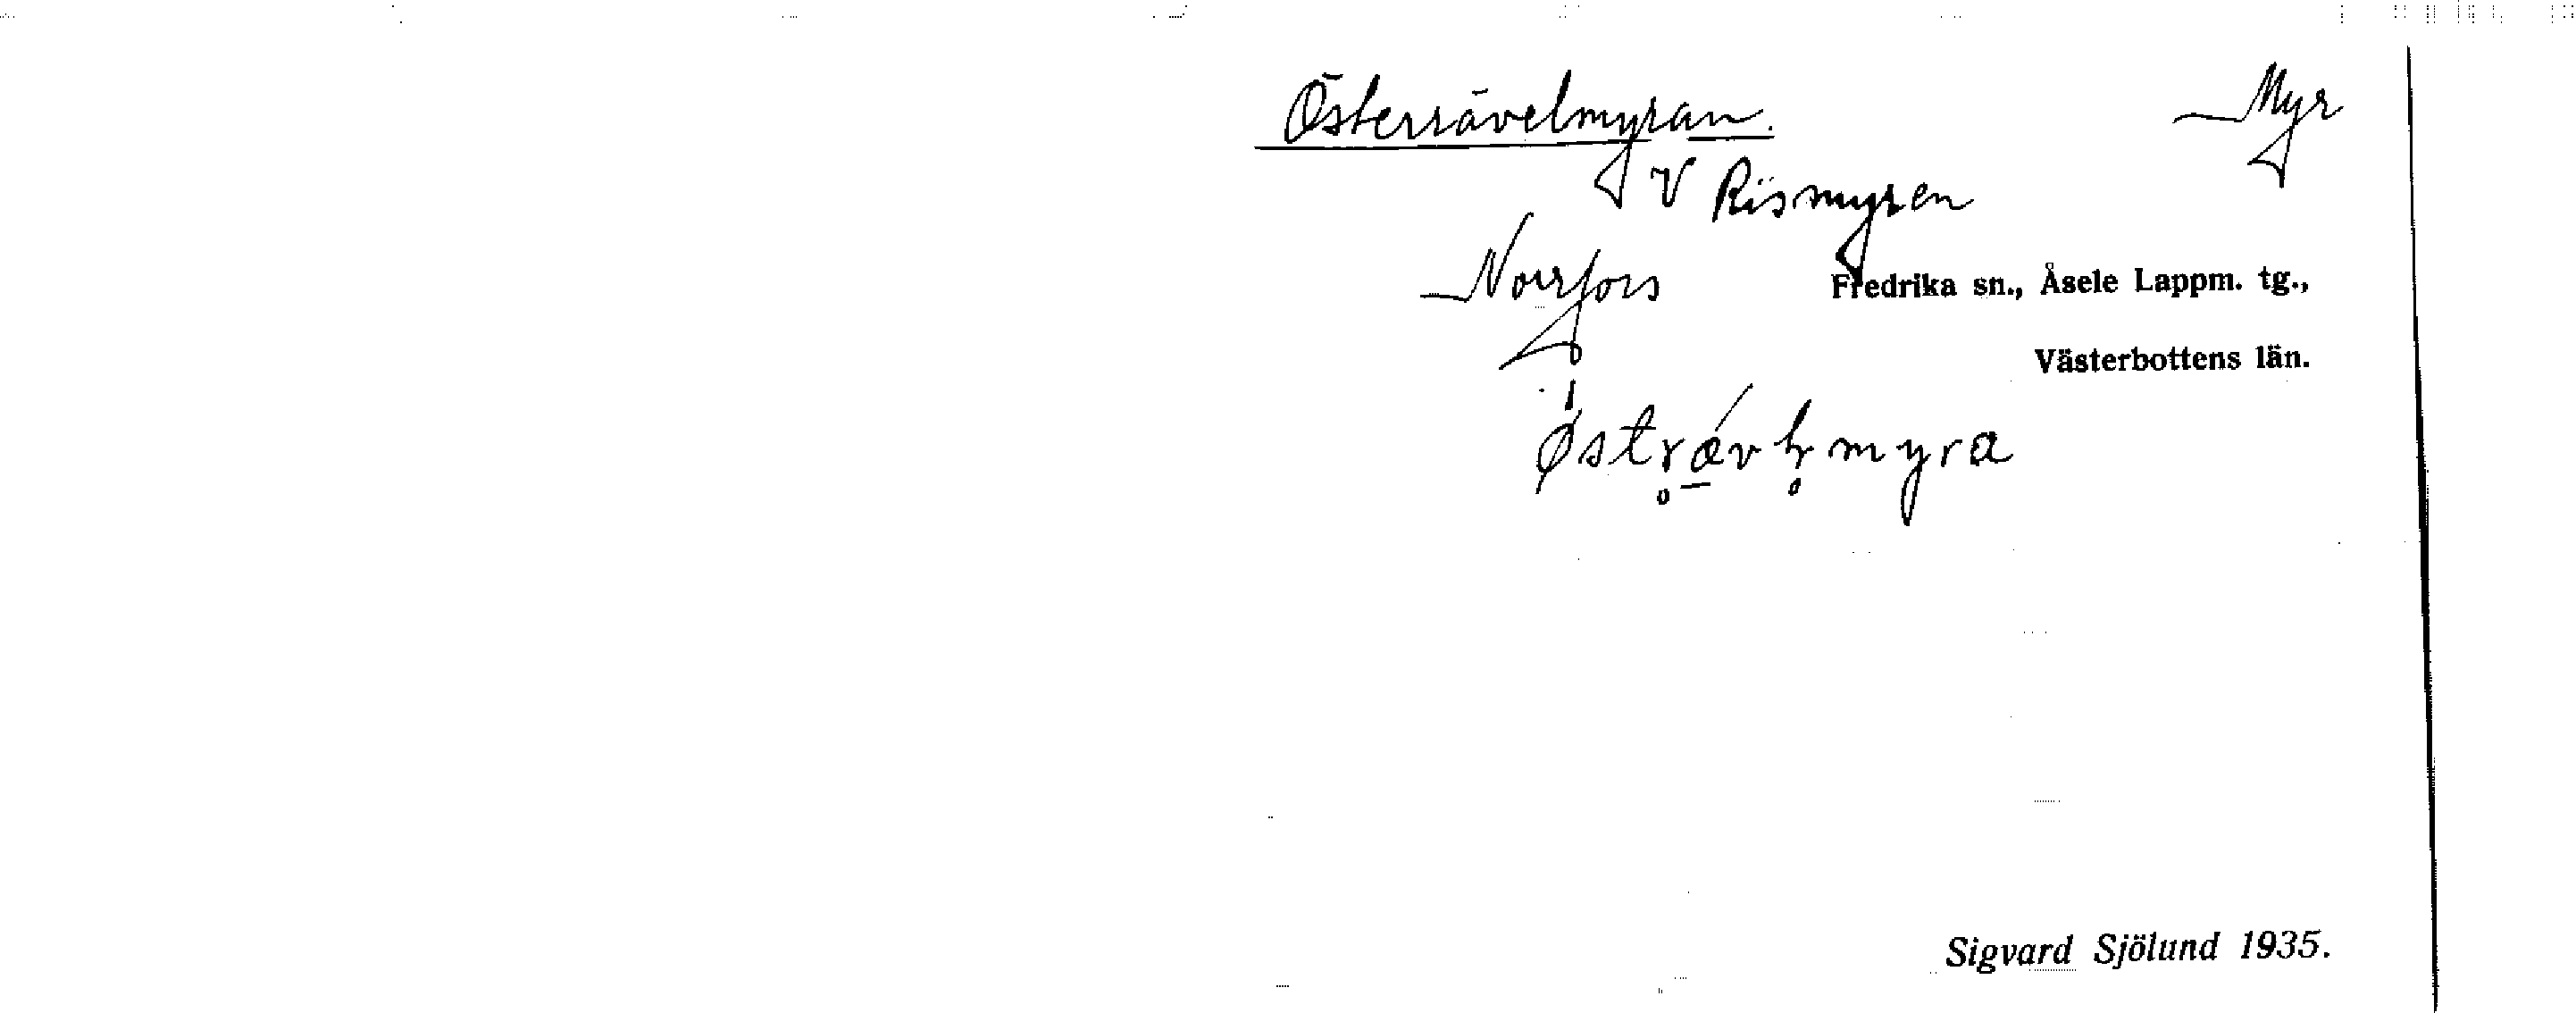 Österrävelmyran. Myr
V Rismyren
Norrfors Fredrika sn., Åsele Lappm. tg.,
Västerbottens län.
Sigvard Sjölund 1935.